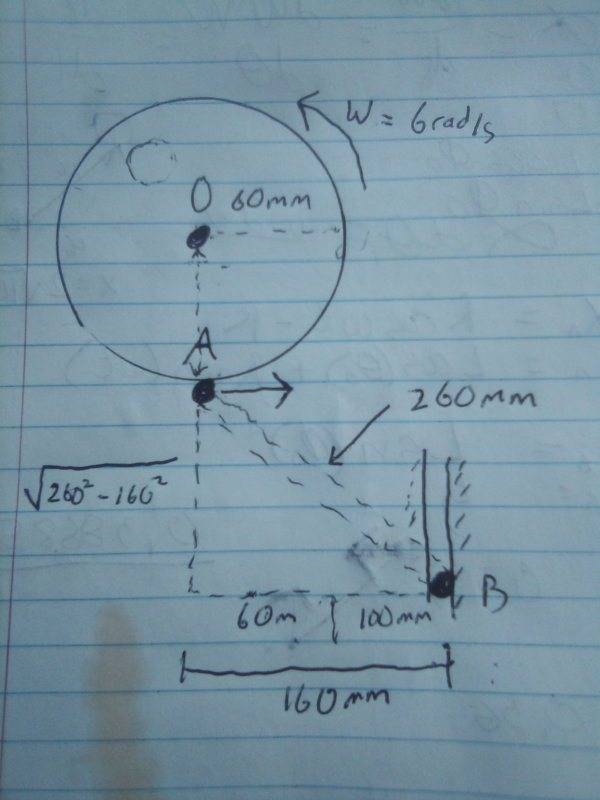 W = 6rad/s
O 60mm
A
260mm
√260² - 160²
B
60m 100mm
160mm